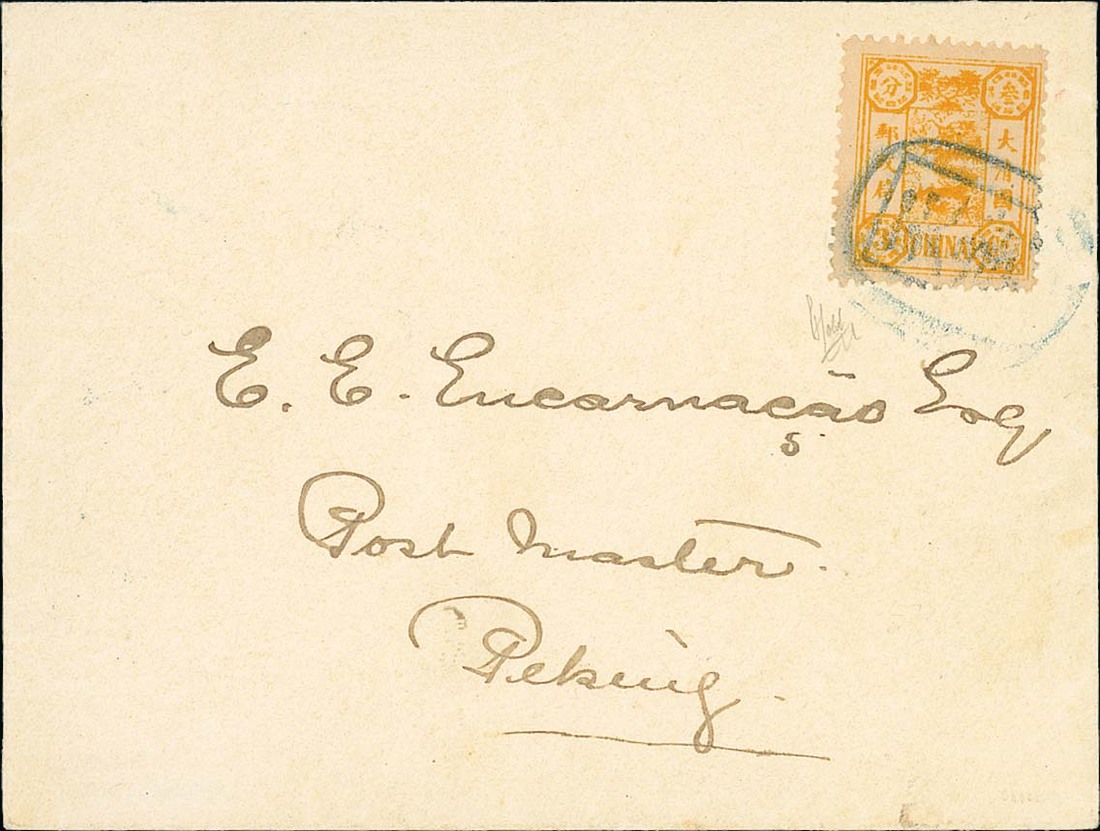 分 叁
郵政局 大清國
3 CHINA
E. E. Encarnação Esq
s
Post Master.
Peking.